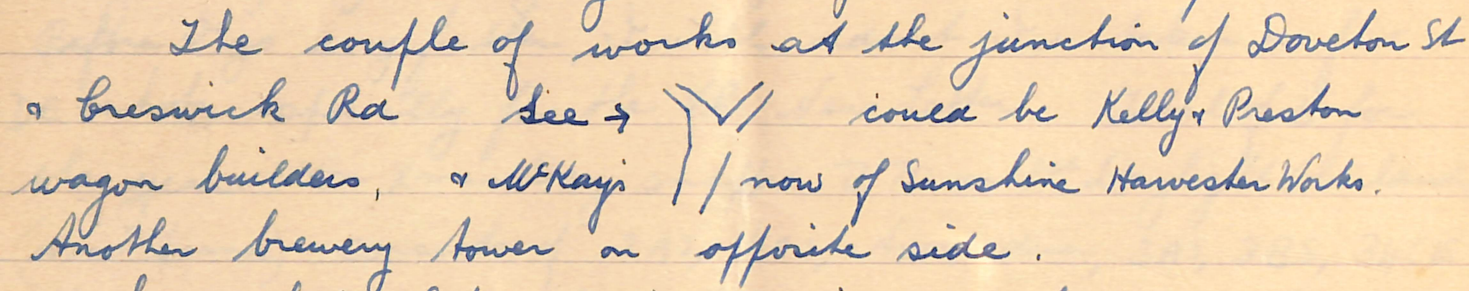 The couple of works at the junction of Doveton St
& Creswick Rd See → could be Kelly & Preston
wagon builders, & McKays now of Sunshine Harvester Works.
Another brewery tower on opposite side.